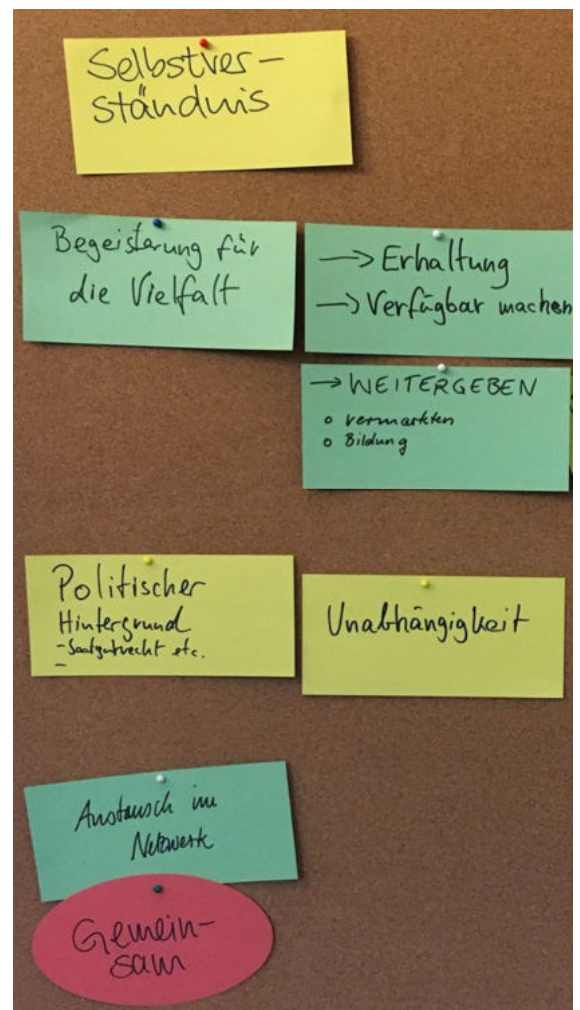 Selbstver-
ständnis
Begeisterung für
die Vielfalt
→ Erhaltung
→ Verfügbar machen
→ WEITERGEBEN
o vermarkten
o Bildung
Politischer
Hintergrund
- Saatgutrecht etc.
-
Unabhängigkeit
Austausch im
Netzwerk
Gemein-
sam